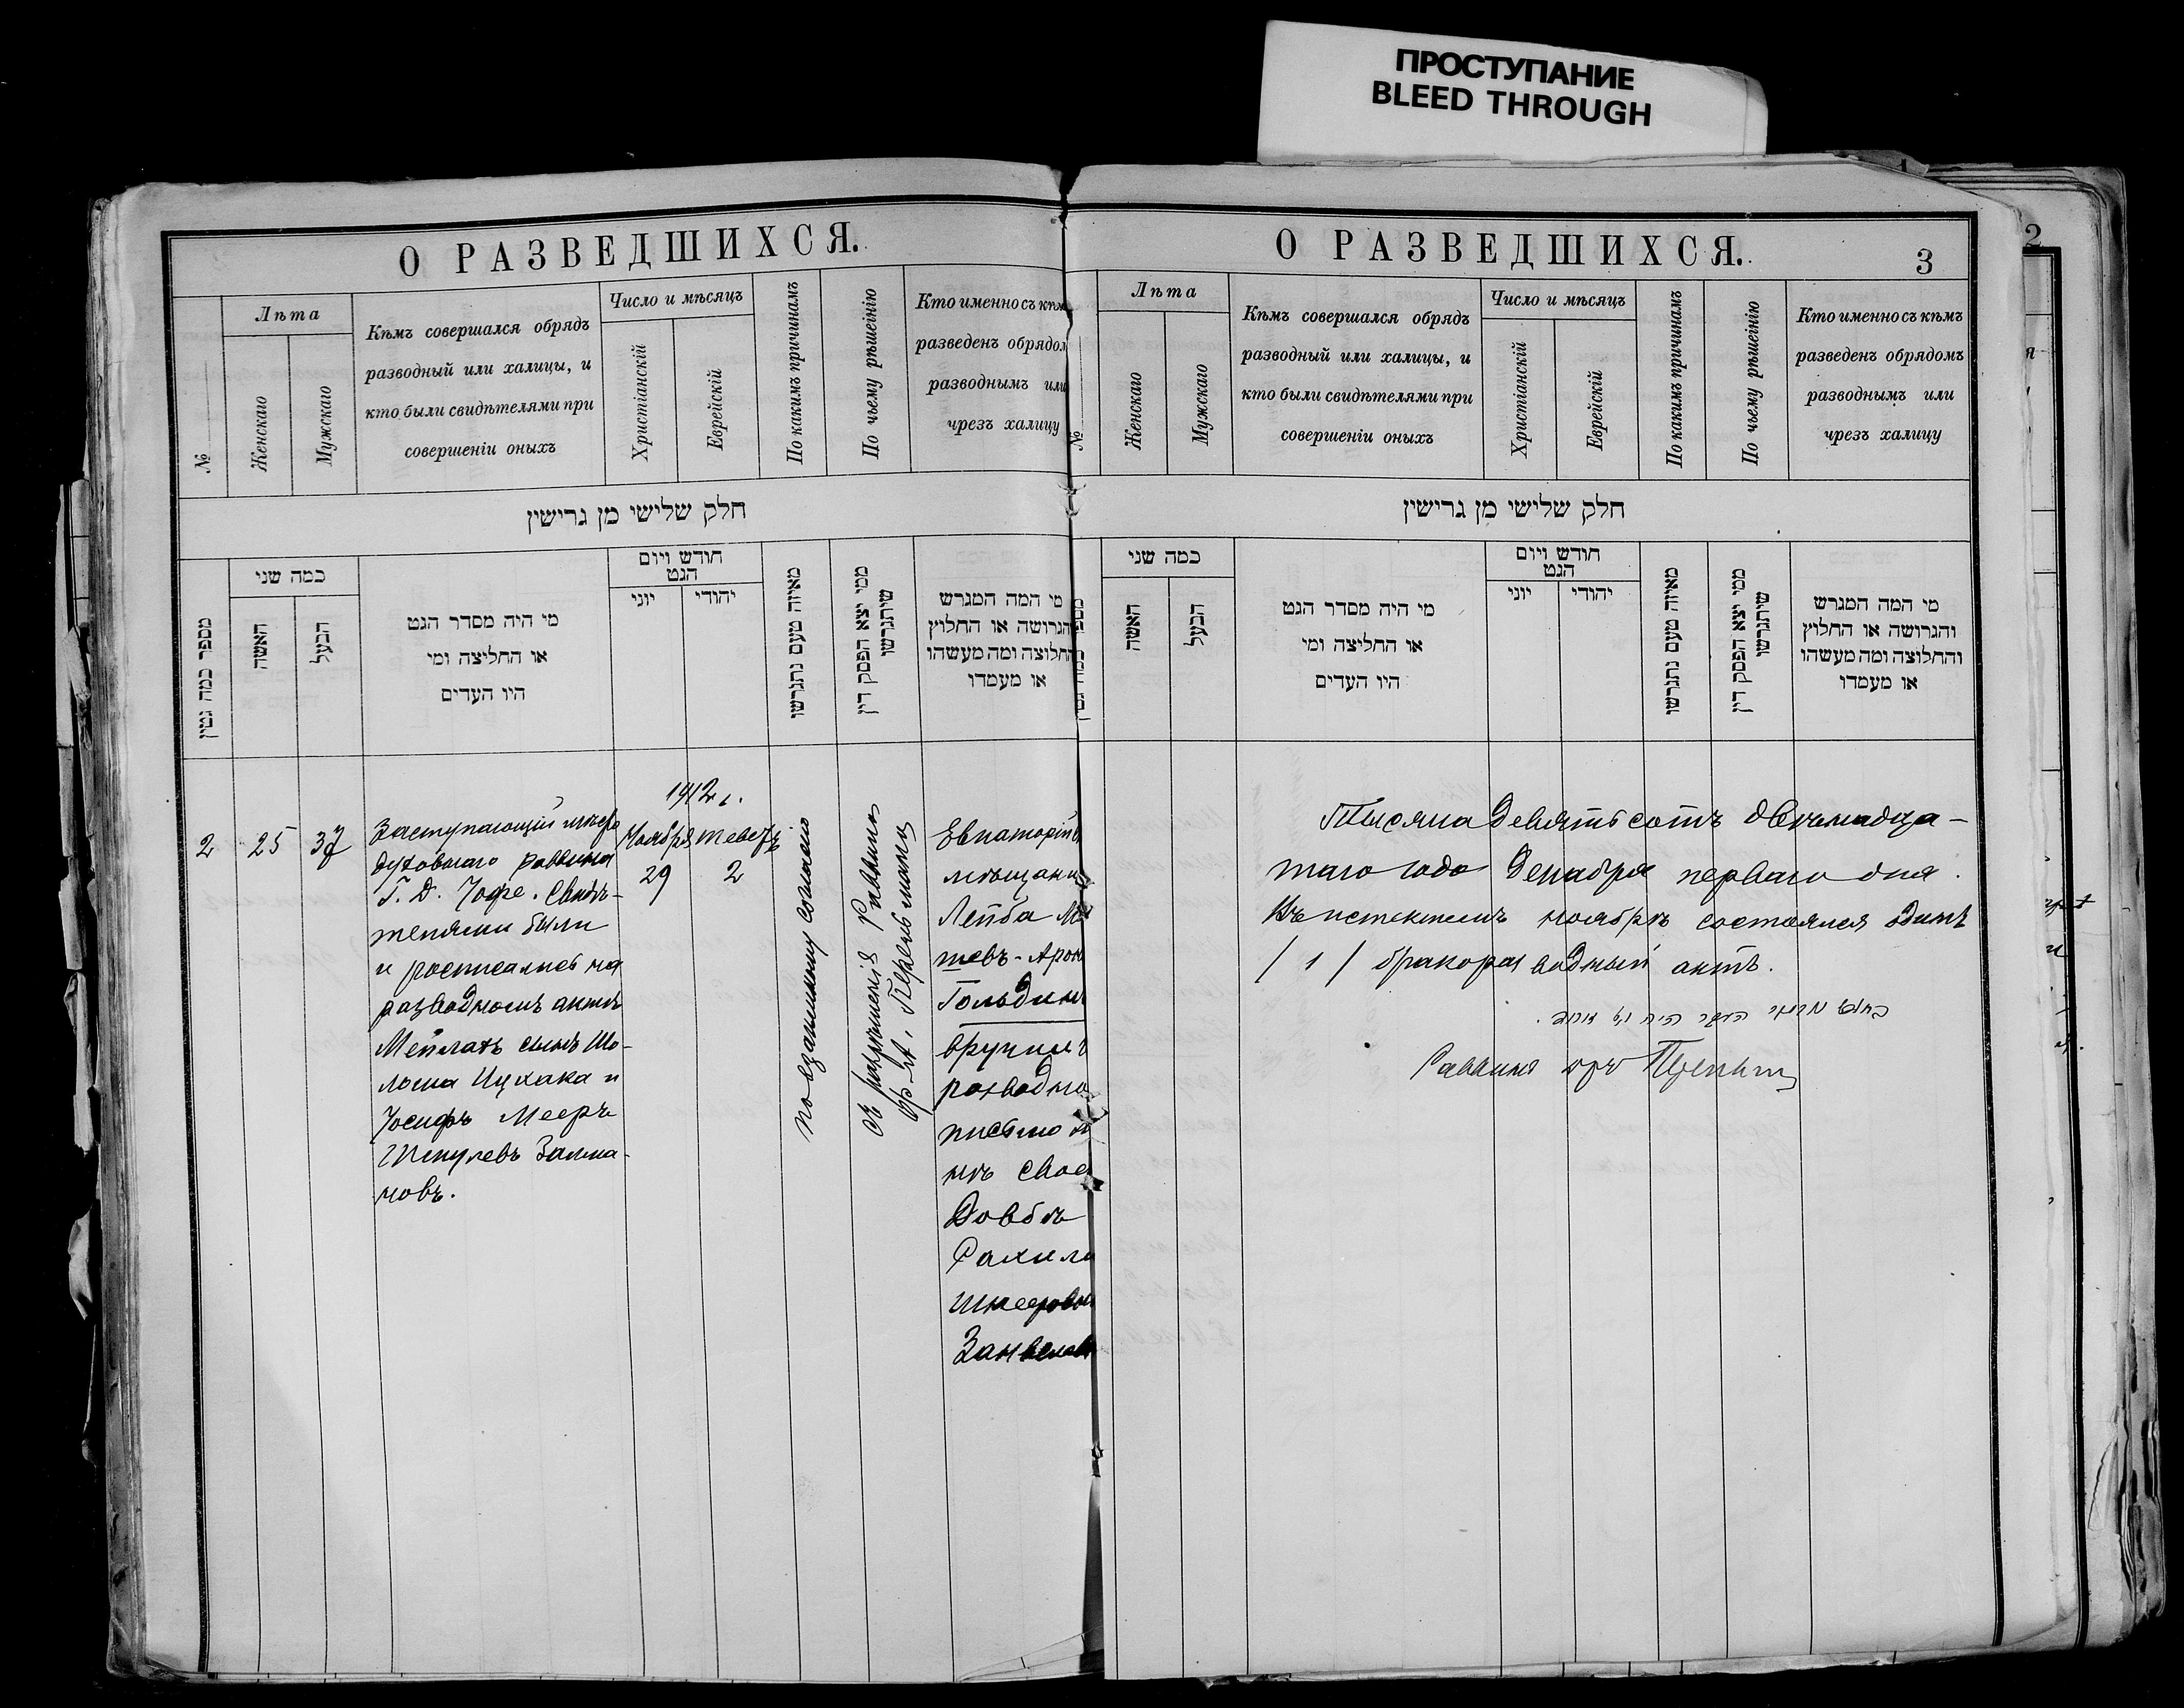 ПРОСТУПАНИЕ
BLEED THROUGH
О РАЗВЕДШИХСЯ.
№
Лѣта
Женскаго
Мужскаго
Кѣмъ совершался обрядъ
разводный или халицы, и
кто были свидѣтелями при
совершеніи оныхъ
Число и мѣсяцъ
Христіанскій
Еврейскій
По какимъ причинамъ
По чьему рѣшеінію
Кто именно съ кѣм
разведенъ обрядом
разводнымъ или
чрезъ халицу
חלק שלישי מן גרישין
מספר כמה גטין
כמה שני
האשה
הבעל
מי היה מסדר הגט
או החליצה ומי
היו העדים
חודש ויום
הגט
יוני
יהודי
מאיזה טעם נתגרשו
ממי יצא הפסק דין
שיתגרשו
מי המה המגרש
והגרושה או החלוץ
והחלוצה ומה מעשהו
או מעמדו
2
25
37
Заступающій мѣсто
духовнаго раввина
Г. Д. Іофе. Свидѣ-
телями были
и росписались на
разводномъ актѣ
Мейлахъ сынъ Шо-
лома Ицхака и
Іосифъ Мееръ
Шмулевъ Залма-
новъ.
1912 г.
Ноября
29
Теветъ
2
по взаимному согласію
съ разрѣшенія Раввина
Евпаторій
мѣщани
Лейба Мо
шевъ-Арон
Гольдин
вручилъ
разводно
письмо
нѣ свое
Довбѣ
Рахили
Шмеров
Занвелов
О РАЗВЕДШИХСЯ.
3
№
Лѣта
Женскаго
Мужскаго
Кѣмъ совершался обрядъ
разводный или халицы, и
кто были свидѣтелями при
совершеніи оныхъ
Число и мѣсяцъ
Христіанскій
Еврейскій
По какимъ причинамъ
По чьему рѣшеінію
Кто именно съ кѣмъ
разведенъ обрядомъ
разводнымъ или
чрезъ халицу
חלק שלישי מן גרישין
כמה שני
האשה
הבעל
מי היה מסדר הגט
או החליצה ומי
היו העדים
חודש ויום
הגט
יוני
יהודי
מאיזה טעם נתגרשו
ממי יצא הפסק דין
שיתגרשו
מי המה המגרש
והגרושה או החלוץ
והחלוצה ומה מעשהו
או מעמדו
Тысяча девятьсотъ двѣнадца-
таго года Декабря перваго дня.
Въ истекшемъ ноябрѣ состоялся одинъ
/ 1 / бракоразводный актъ.
Раввинъ
2